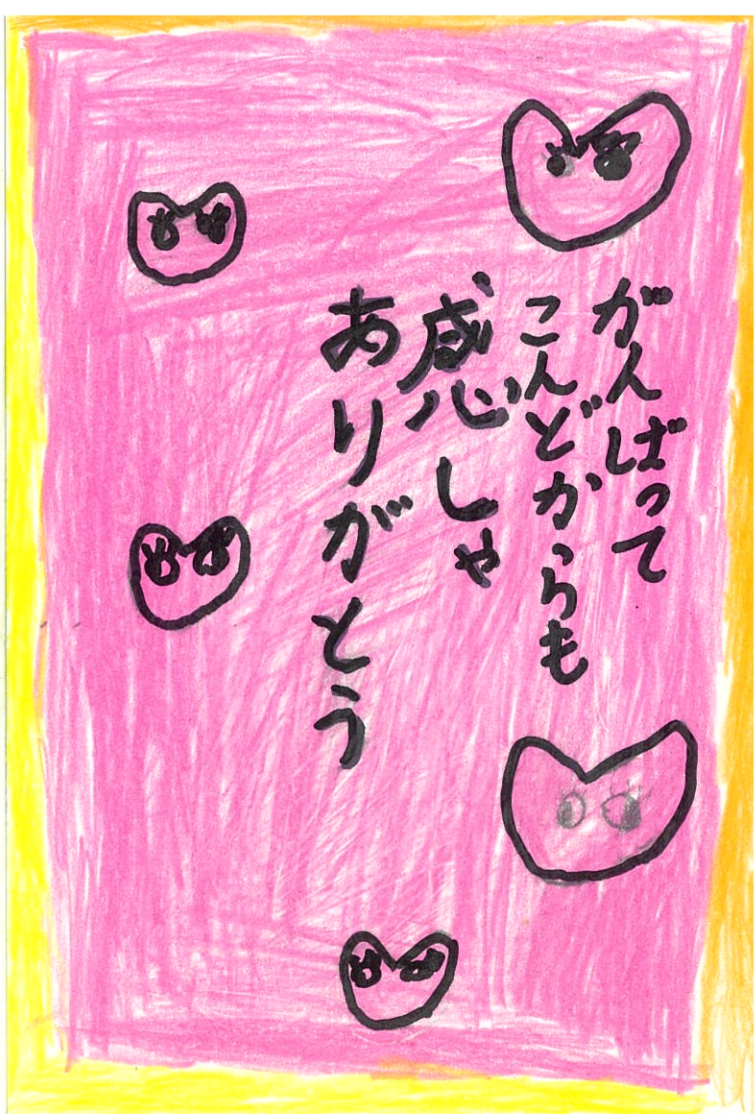 がんばって
こんどからも
感しゃ
ありがとう